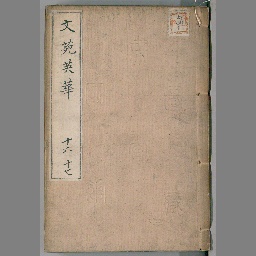 文苑英華
十六 十七